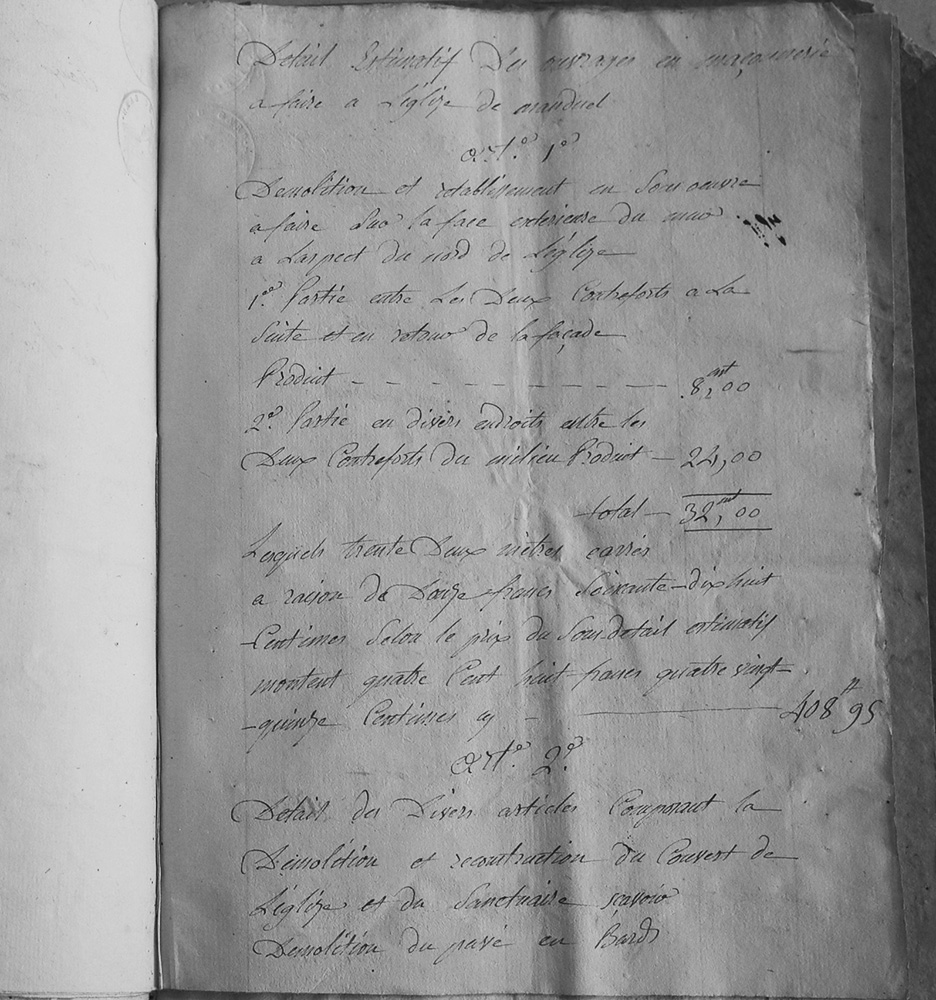 Detail Estimatif Des ouvrages en maçonnerie
a faire a L'églize de manduel
art.e 1.er
Demolition et retablissement en Sous oeuvre
a faire Sur la face exterieure du mur
a L'aspect du nord de L'églize
1.ere Partie entre Les Deux Contreforts a La
Suite et en retour de la façade
Produit - - - - - - - - 8,mt00
2.e Partie en divers endroits entre les
Deux Contreforts du milieu Produit — 24,00
total — 32,mt00
Lesquels trente Deux mètres carrés
a raison de Douze francs Soixante-dix huit
Centimes Selon le prix du Sous detail estimatif
montent quatre Cent huit francs quatre vingt-
-quinze Centimes cy — 408ff 95
art.e 2.e
Detail des Divers articles Composant la
Démolition et reconstruction du Couvert de
L'églize et du Sanctuaire scavoir
Demolition du pavé en Bards